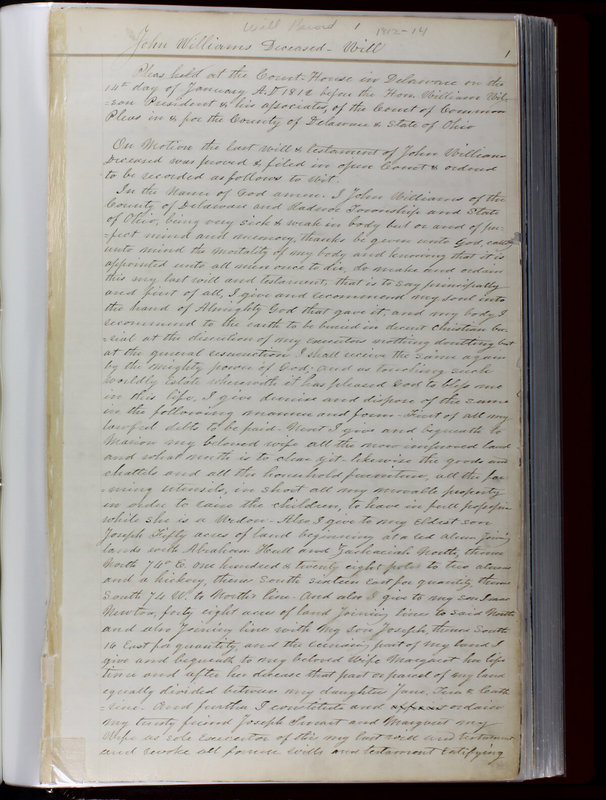 Will Record 1 1812-14
John Williams Deceased - Will 1
Pleas held at the Court-House in Delaware on the
14th day of January A.D 1812 before the Hon. William Wil-
-son President & his associates, of the Court of Common
Pleas in & for the County of Delaware & State of Ohio
On Motion the Last will & testament of John Williams
Deceased was proved & filed in open Court & ordered
to be recorded as follows to Wit.
In the Name of God amen. I John Williams of the
County of Delaware and Radnor Township and State
of Ohio, being very sick & weak in body but or and of per-
-fect mind and memory, thanks be given unto God, calling
unto mind the mortality of my body and knowing that it is
appointed unto all men once to die, do make and ordain
this my last will and testament, that is to say principally
and first of all, I give and recommend my soul into
the hand of Almighty God that gave it, and my body I
recommend to the earth to be buried in decent Christian bu-
-rial at the discretion of my executors nothing doubting but
at the general resurrection I shall receive the same again
by the mighty power of God; and as touching such
worldly estate wherewith it has pleased God to bless me
in this life, I give demise and dispose of the same
in the following manner and form - First of all my
lawful debts to be paid - Next I give and bequeath to
my beloved wife all the now improved land
and what north is to clear yet likewise the goods and
chattels and all the household furniture, all the far-
-ming utensils, in short all my movable property
in order to raise the children, to have in full possession
while she is a Widow - Also I give to my eldest son
Joseph Fifty acres of land beginning at a red Joining
lands with Abraham and Zachariah North, thence
North 74° E. one hundred & twenty eight poles to two
and a hickory, thence South sixteen East for quantity thence
South 74 W. to North's line - And also I give to my son Isaac
Newton, forty eight acres of land joining lines to said North
and also joining line with my son Joseph, thence South
16 East for quantity, and the remaining part of my land I
give and bequeath to my beloved Wife Margaret her life
time and after her decease that part or parcel of my land
equally divided between my daughters Jane, & Cath
-rine. And further I constitute and ordain
my trusty friend Joseph and Margaret my
Wife as sole executor of this my last will and testament
and revoke all former wills and testament ratifying